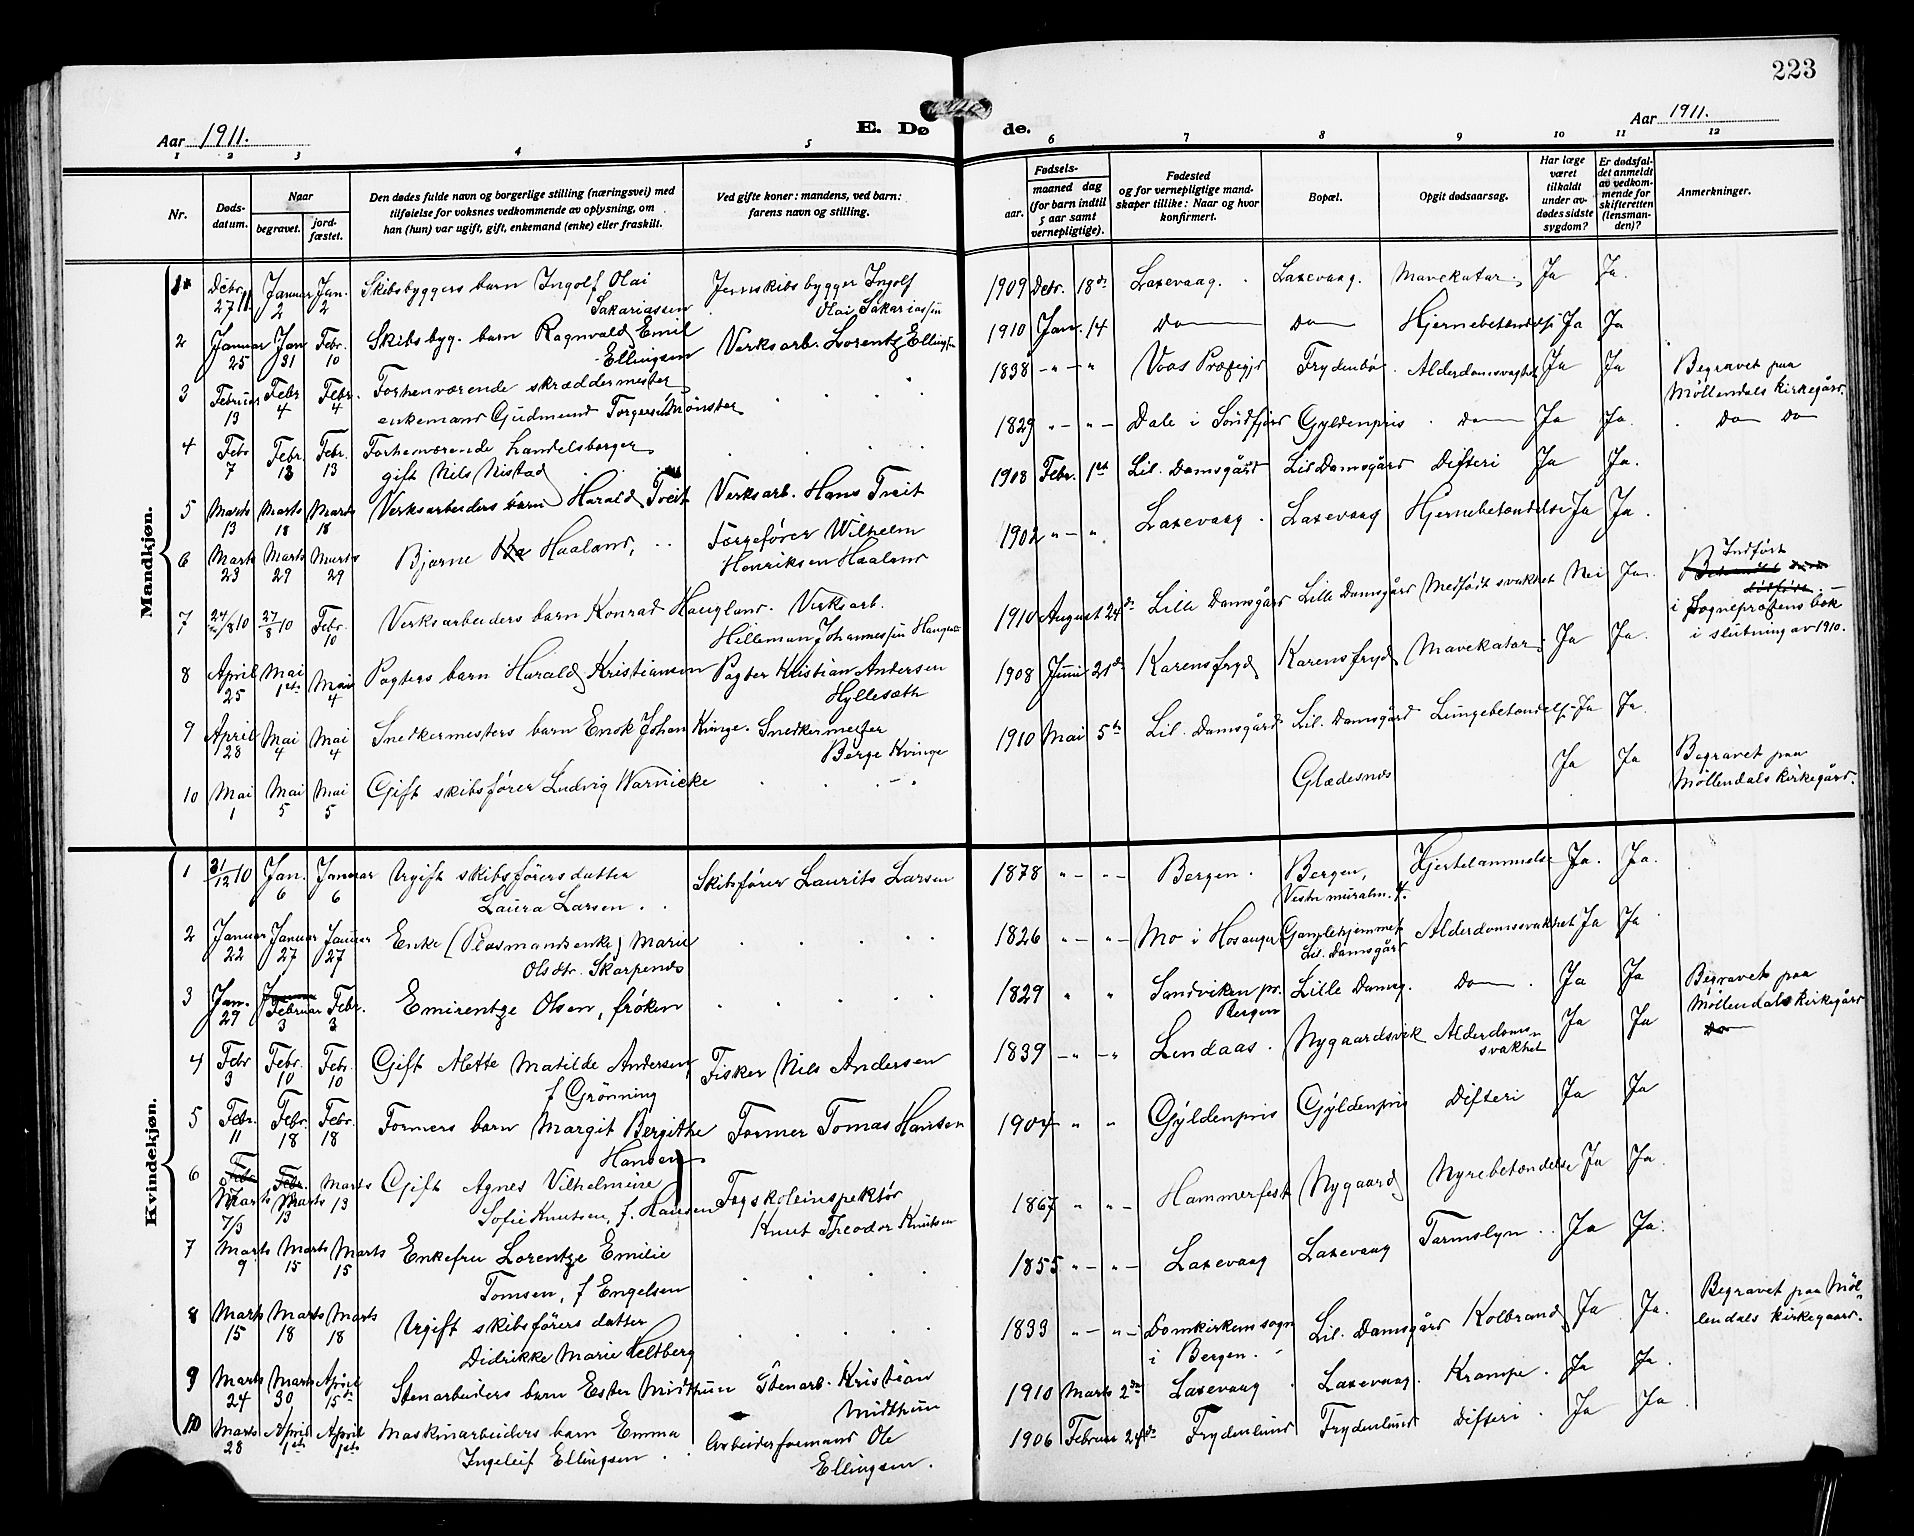 223
Aar 1911.
E. Dø de.
Aar 1911.
1 2 3 4 5 6 7 8 9 10 11 12
Nr.
Døds-
datum.
Naar
begravet.
jord-
fæstet.
Den dødes fulde navn og borgerlige stilling (næringsvei) med
tilføielse for voksnes vedkommende av oplysning, om
han (hun) var ugift, gift, enkemand (enke) eller fraskilt.
Ved gifte koner: mandens, ved barn:
farens navn og stilling.
Fødsels-
aar.
maaned dag
(for barn indtil
5 aar samt
vernepligtige).
Fødested
og for vernepligtige mand-
skaper tillike: Naar og hvor
konfirmert.
Bopæl.
Opgit dødsaarsag.
Har læge
været
tilkaldt
under av-
dødes sidste
sygdom?
Er dødsfal-
det anmeldt
av vedkom-
mende for
skifteretten
(lensman-
den)?
Anmerkninger.
Mandkjøn.
1 Debr. 27 Januar 2 Jan. 2 Skibsbyggers barn Ingolf Olai
Sakariassen
Jernskibsbygger Ingolf
Olai Sakariassen
1909 Debr. 18de Laxevaag. Laxevaag. Mavekatar. Ja Ja.
2 Januar 25 Jan 31 Febr. 10 Skibsbyg. barn Ragnvald Emil
Ellingsen
Verksarb. Lorentz Ellingsen
1910 Jan. 14 Do Do Hjernebetændelse Ja Ja
3 Februar 13 Febr 4 Febr. 4 Forhenværende skræddermester
enkemand Gudmund Torgersen Mønster
1838 Voss Præstegj. Frydenbø. Alderdomssvaghet Ja Ja
Begravet paa
Møllendals kirkegård.
4 Febr 7 Febr. 13 Febr. 13 Forhenværende handelsborger
gift Nils Nistad
1829 Dale i Søndfjord Gyldenpris Do Ja Ja. Do Do
5 Marts 13 Marts 18 Marts 18 Verksarbeiders barn Harald Tveit
Verksarb. Hans Tveit
1908 Febr. 1st Lil. Damsgård Lil. Damsgård Difteri Ja Ja.
6 Marts 23 Marts 29 Marts 29 Bjarne Haaland,
Færgefører Wilhelm
Henriksen Haaland
1902 Laxevaag. Laxevaag Hjernebetændelse Ja Ja.
7 24/8 10 27/8 10 Febr. 10 Verksarbeiders barn Konrad Haugland.
Verksarb.
Hilleman Johannessen Haugland
1910 August 24de Lille Damsgård Lille Damsgård Medfødt svakhet Nei Ja.
Indført
i Sogneprestens bok
i slutning av 1910.
8 April 25 Mai 1ste Mai 4 Pagters barn Harald Kristiansen
Pagter Kristian Andersen
Hyllesæth
1908 Juni 21de Karensfryd Karensfryd Mavekatar. Ja Ja.
9 April 28 Mai 4 Mai 4 Snedkermesters barn Enok Johan Kvinge.
Snedkermester
Berge Kvinge
1910 Mai 5te Lil. Damsgård Lil. Damsgård Lungebetændelse Ja Ja.
10 Mai 1 Mai 5 Mai 5 Gift skibsfører Ludvig Warnicke
Glædesnes Ja Ja
Begravet paa
Møllendals kirkegård.
Kvindekjøn.
1 31/12 10 Jan. 6 Januar 6 Ugift skibsførers datter
Laura Larsen.
Skibsfører Laurits Larsen
1878 Bergen. Bergen,
Vestre muralm. 4.
Hjertelammelse Ja. Ja.
2 Januar 22 Januar 27 Januar 27 Enke (Plasmandsenke) Marie
Olsdtr. Skarpenæs
1826 Mo i Hosanger Gamlehjemmet
Lil. Damsgård
Alderdomssvakhet Ja Ja
3 Jan. 29 Februar 3 Febr. 3 Emirentze Olsen, frøken
1829 Sandviken pr.
Bergen
Lille Damsg. Do. Ja Ja
Begravet paa
Møllendals kirkegård
4 Febr 3 Febr. 10 Febr. 10 Gift Alette Matilde Andersen,
f Grønning
Fisker Nils Andersen
1839 Lindaas. Nygaardsvik Alderdoms-
svakhet
Ja Ja Do
5 Febr. 11 Febr. 18 Febr. 18 Formers barn Margit Bergitte
Hansen
Former Tomas Hansen
1904 Gyldenpris Gyldenpris Difteri Ja Ja
6 Febr. Marts 7/3 Febr. Marts 13 Marts 13 Gift Agnes Vilhelmine
Sofie Knutsen, f. Hansen
Fagskoleinspektør
Knut Theodor Knutsen
1867 Hammerfest Nygaard Nyrebetændelse Ja Ja.
7 Marts 9 Marts 15 Marts 15 Enkefru Lorentze Emilie
Tomsen, f Engelsen
1855 Laxevaag Laxevaag Tarmslyn. Ja Ja.
8 Marts 15 Marts 18 Marts 18 Ugift skibsførers datter
Didrikke Marie Heltberg
1833 Domkirkens sogn
i Bergen.
Lil. Damsgård Kolbrand Ja Ja.
Begravet paa Møl-
lendals kirkegaard.
9 Marts 24 Marts 30 April 15de Stenarbeiders barn Ester Midttun
Stenarb. Kristian
Midttun
1910 Marts 2den Laxevaag. Laxevaag. Krampe. Ja Ja.
10 Marts 28 April 1ste April 1ste Maskinarbeiders barn Emma
Ingeleif Ellingsen.
Arbeiderformand Ole
Ellingsen.
1906 Februar 24de Frydenlund Frydenlund Difteri. Ja Ja.